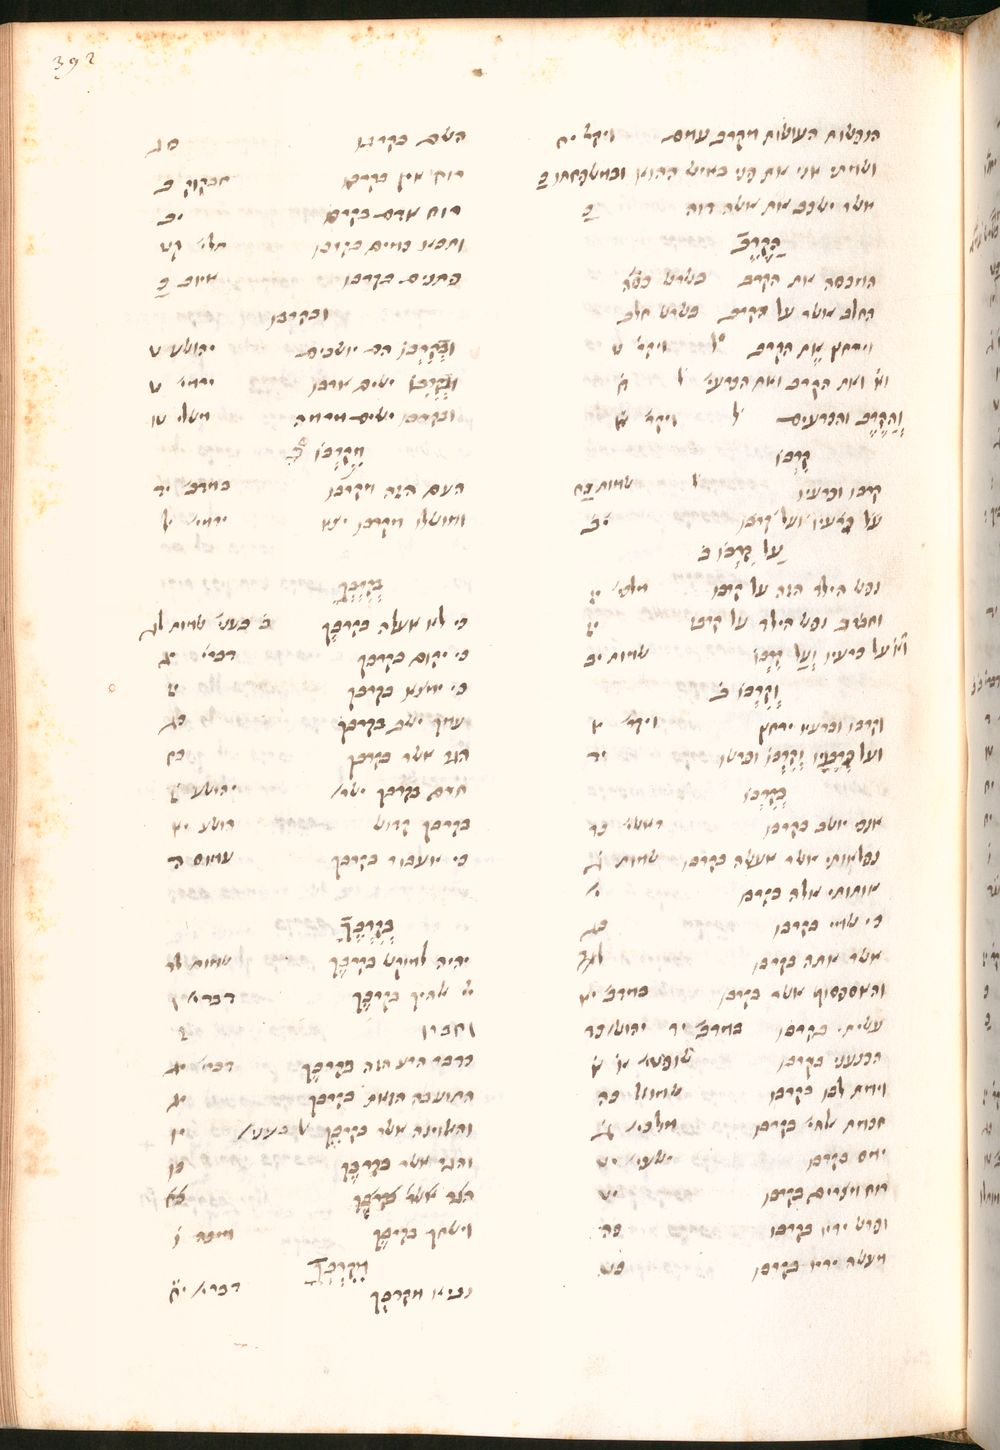 392
הנפשות העושות מקרב עמם ויקר׳ יח
ושמתי אני את פני באיש ההוא ובמשפחתו כ
אשר ישכב את אשה דוה כ
הַקֶרֶב
המכסה את הקרב בשרש כסה
החלב אשר על הקרב בשרש חלב
וירחץ את הקרב ל׳ ויקר׳ ט
ואת הקרב ואת הכרעי׳ ל׳ ח
וְהַקֶרֶב והכרעים ל׳ ויקר׳ א
קִרְבּוֹ
קרבו וכרעיו ל׳ שמות כט
על כרעיו ועל קרבו יב
עַל קִרְבּוֹ ב
נפש הילד הזה על קרבו מלכי׳ יז
ותשב נפש הילד על קרבו יז
ראשו על כרעיו וְעַל קִרְבּוֹ שמות יב
וְקִרְבּוֹ ב
וקרבו וכרעיו ירחץ ויקר׳ א
ועל כְרָעָיו וְקִרְבּוֹ ופרשו יד
בְקִרְבּוֹ
אנכי יושב בקרבו ראשי׳ כד
נפלאותי אשר אעשה בקרבו שמות ג
אותותי אלה בקרבו י
כי שמי בקרבו כג
אשר אתה בקרבו לד
והאספסוף אשר בקרבו במדב׳ יא
עשיתי בקרבו במדב׳ יד יהוש׳ כד
הכנעני בקרבו שופטי׳ א
וימת לבו בקרבו שמואל כה
חכמת אלהי׳ בקרבו מלכי׳ ג
ימס בקרבו ישעי׳ יט
רוח מצרים בקרבו יט
ופרש ידיו בקרבו כה
מעשה ידיו בקרבו כט
השם בקרבו סג
רוח אין בקרבו חבקוק ב
רוח אדם בקרבו יב
ותבא כמים בקרבו תלי׳ קט
פתנים בקרבו איוב כ
ובקרבו
וּבְקִרְבּוֹ הם יושבים יהושע ט
וּבְקִרְבּוֹ ישים ארבו ירמי׳ ט
ובקרבו ישית מרמה משלי כו
מִקִרְבּוֹ ב
העם הזה מקרבו במדב׳ יד
ומושלו מקרבו יצא ירמי׳ ל
בְקִרְבֶּךָ
כי לא אעלה בקרבך ב׳ בעני׳ שמות לג
כי יקום בקרבך דברי׳ יג
כי ימצא בקרבך יז
עמך ישב בקרבך כג
הגר אשר בקרבך כח
חרם בקרבך ישר׳ יהושע ז
בקרבך קדוש הושע יא
כי אעבור בקרבך עמוס ה
בְקִרְבֶּךָ
יהיה למוקש בקרבך שמות לד
יי אלהיך בקרבך דברי׳ ו
כדבר הרע הזה בקרבך דברי׳ יג
התועבה הזאת בקרבך יג
והאלמנה אשר בקרבך ל׳ בעני׳ יו
והגר אשר בקרבך כו
הגר אשר בקרבך כח
וישחך בקרבך מיכה ו
מִקִרְבְּךָ
נביא מקרבך דברי׳ יח